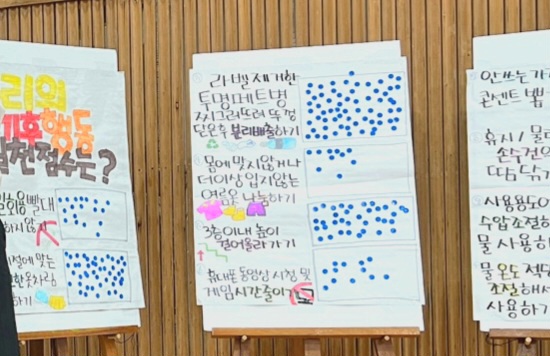 리의
기후행동
실천점수는?
일회용 빨대
하지않기
계절에 맞는
하기
라벨 제거한
투명페트병
찌그러뜨려 뚜껑
닫은 후 분리배출하기
몸에 맞지않거나
더이상 입지않는
의류 나눔하기
3층이내 높이
걸어올라가기
휴대폰 동영상 시청 및
게임시간줄이기
안쓰는 가
콘센트 뽑
휴지 / 물
손수건
땀닦기
사용용도에
수압조절하
물 사용하
물 온도 적당
조절해서
사용하기